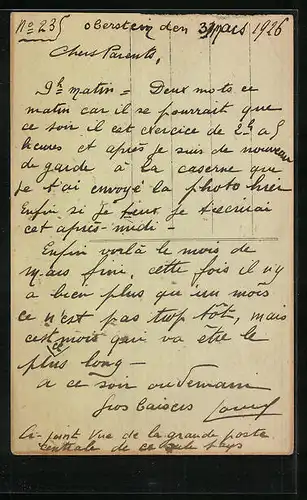 No 235 Oberstein den 31 mars 1926
Chers Parents,
9h matin = Deux mots ce
matin car il se pourrait que
ce soir il est exercice de 2h à 5
heures et après je suis de nouveau
de garde à la caserne que
je t'ai envoyé la photo hier
Enfin si je peux je t'ecrirai
cet après-midi -
Enfin voilà le mois de
mars fini, cette fois il n'y
a bien plus qu'un mois
ce n'est pas trop tôt, mais
ce mois qui va être le
plus long -
a ce soir ou demain
Gros baisers
Ci-joint Vue de la grande poste
centrale de ce pays